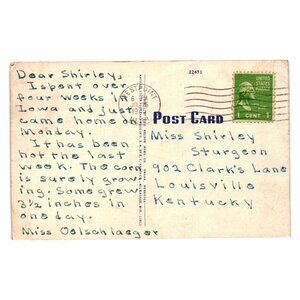 Dear Shirley,
I spent over
four weeks in
Iowa and just
came home on
Monday.
It has been
hot the last
week. The corn
is surely grow
ing. Some grew
3½ inches in
one day.
Miss Oelschlaeger
22451
WEST POINT
UNITED STATES
1 CENT 1
POST CARD
Miss Shirley
Sturgeon
902 Clark's Lane
Louisville
Kentucky